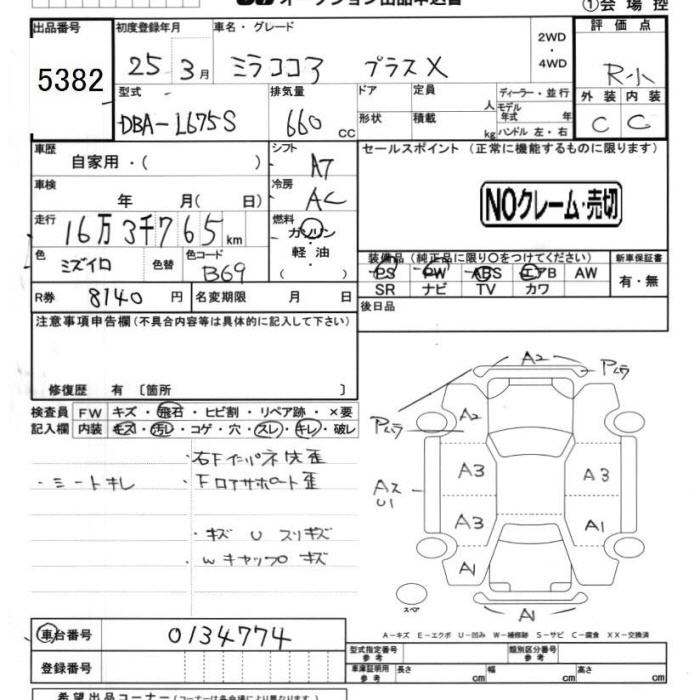 オークション出品申込書
①会場控
出品番号 初度登録年月 車名・グレード 評価点
5382 25年3月 ミラココア プラスX 2WD・4WD R-小
型式 排気量 ドア 定員 人 ディーラー・並行 外装 内装
DBA-L675S 660cc 形状 積載 kg モデル年式 年 ハンドル 左・右 C C
車歴 自家用・( ) シフト AT セールスポイント (正常に機能するものに限ります)
車検 年 月( 日) 冷房 AC
NOクレーム・売切
走行 16万3千765km 燃料 ガソリン・軽油・( )
色 ミズイロ 色替 色コード B69
装備品 (純正品に限り○をつけてください) 新車保証書
PS PW ABS エアB AW 有・無
SR ナビ TV カワ
R券 8140円 名変期限 月 日 後日品
注意事項申告欄 (不具合内容等は具体的に記入して下さい)
修復歴 有 〔箇所 〕
検査員 FW キズ・飛石・ヒビ割・リペア跡・×要
記入欄 内装 キズ・汚レ・コゲ・穴・スレ・キレ・破レ
・シートキレ
・キズ U スリキズ
Wキャップ キズ
A2
A2
A3
A3
A3
A1
A1
A1
U1
スペア
A-キズ E-エクボ U-凹み W-補修跡 S-サビ C-腐食 XX-交換済
車台番号 0134774
登録番号
型式指定番号 参考 類別区分番号 参考
車庫証明用 参考 長さ cm 幅 cm 高さ cm
希望出品コーナー(コーナーは各会場により異なります)